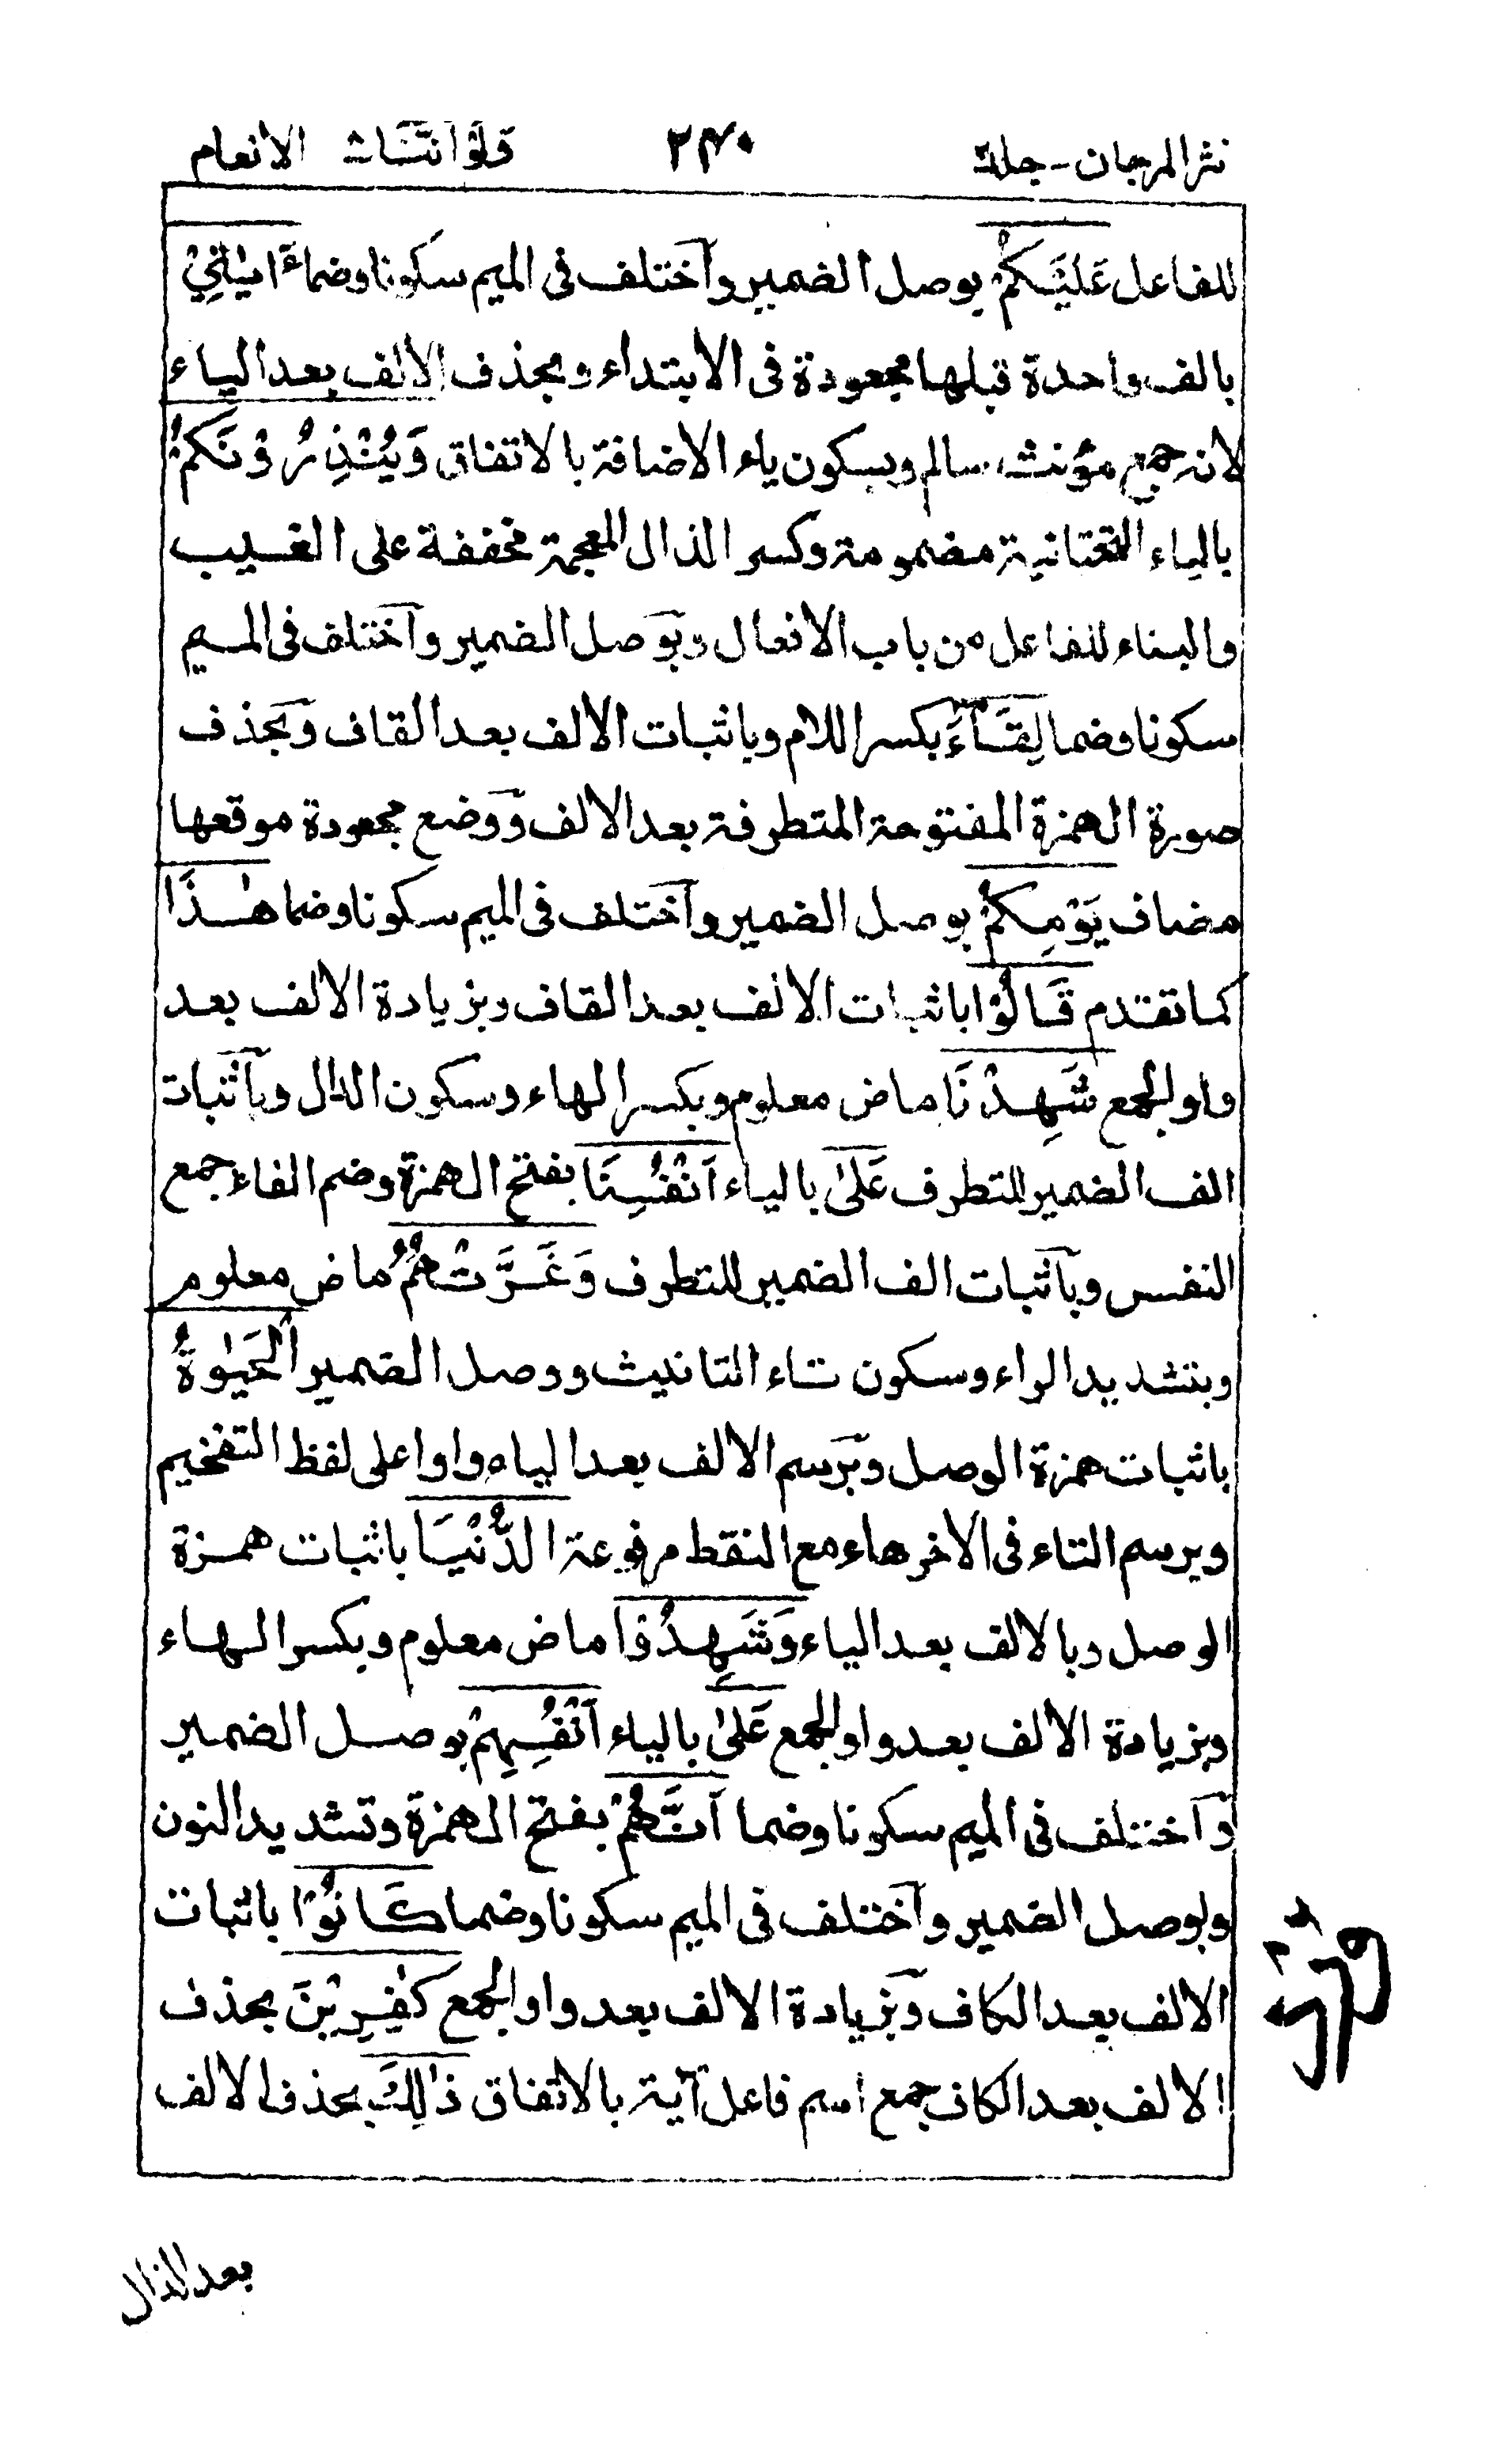 نثر المرجان - جلد ٢٤٠ ولو اننا الانعام
للفاعل عَلَيْكُمْ بوصل الضمير وآختلف فى الميم سكونا وضما ءَايٰتِيْ
بالف واحدة قبلها مجعودة فى الابتداء وبحذف الالف بعد الياء
لانه جمع مؤنث سالم وبسكون ياء الاضافة بالاتفاق وَيُنْذِرُوْنَكُمْ
بالياء التحتانية مضمومة وكسر الذال المعجمة مخففة على الغيب
والبناء للفاعل من باب الافعال وبوصل الضمير وآختلف فى الميم
سكونا وضما لِقَآءَ بكسر اللام وباثبات الالف بعد القاف وبحذف
صورة الهمزة المفتوحة المتطرفة بعد الالف ووضع مجعودة موقعها
مضاف يَوْمِكُمْ بوصل الضمير وآختلف فى الميم سكونا وضما هٰذَا
كما تقدم قَالُوْا باثبات الالف بعد القاف وبزيادة الالف بعد
واو الجمع شَهِدْنَا ماض معلوم وبكسر الهاء وسكون الدال وبآثبات
الف الضمير للتطرف عَلٰى بالياء اَنْفُسِنَا بفتح الهمزة وضم الفاء جمع
النفس وبآثبات الف الضمير للتطرف وَغَرَّتْهُمُ ماض معلوم
وبتشديد الراء وسكون تاء التانيث ووصل الضمير الْحَيٰوةُ
باثبات همزة الوصل وبرسم الالف بعد الياء واوا على لفظ التفخيم
وبرسم التاء فى الاخر هاء مع النقط مرفوعة الدُّنْيَا باثبات همزة
الوصل وبالالف بعد الياء وَشَهِدُوْا ماض معلوم وبكسر الهاء
وبزيادة الالف بعد واو الجمع عَلٰى بالياء اَنْفُسِهِمْ بوصل الضمير
وآختلف فى الميم سكونا وضما اَنَّهُمْ بفتح الهمزة وتشديد النون
وبوصل الضمير وآختلف فى الميم سكونا وضما كَانُوْا باثبات
الالف بعد الكاف وبزيادة الالف بعد واو الجمع كٰفِرِيْنَ بحذف
الالف بعد الكاف جمع اسم فاعل آية بالاتفاق ذٰلِكَ بحذف الالف
بعد الذال